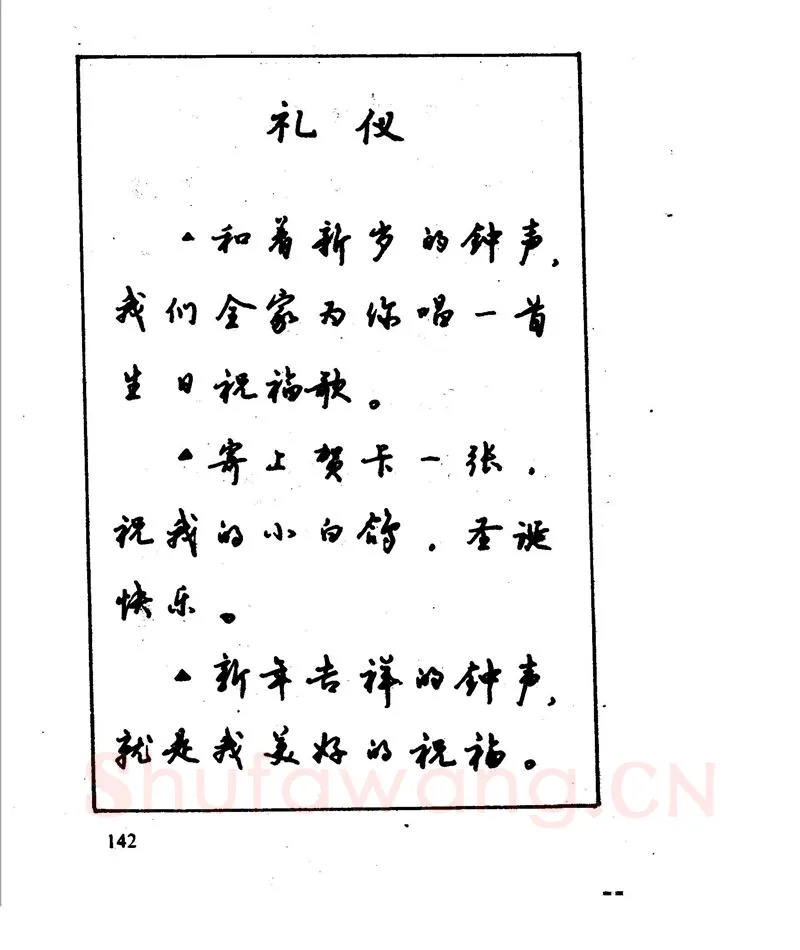 礼仪
▲和着新岁的钟声,
我们全家为你唱一首
生日祝福歌。
▲寄上贺卡一张,
祝我的小白鸽,圣诞
快乐。
▲新年吉祥的钟声,
就是我美好的祝福。
Shufawang.CN
142